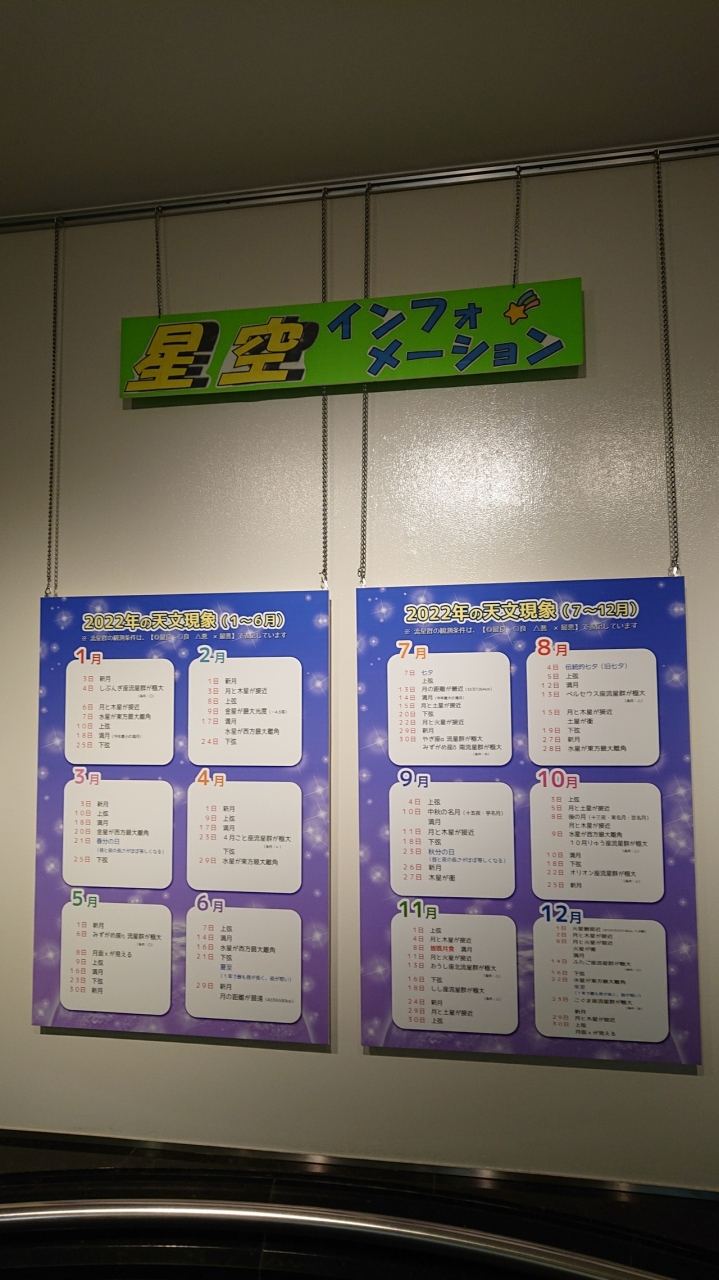 星空 インフォ
メーション
2022年の天文現象(1~6月)
1月
3日 新月
4日 しぶんぎ座流星群が極大
6日 月と木星が接近
7日 水星が東方最大離角
10日 上弦
18日 満月
25日 下弦
2月
1日 新月
3日 月と木星が接近
8日 上弦
9日 金星が最大光度
17日 満月
水星が西方最大離角
24日 下弦
3月
3日 新月
10日 上弦
18日 満月
20日 金星が西方最大離角
21日 春分の日
(昼と夜の長さがほぼ等しくなる)
25日 下弦
4月
1日 新月
9日 上弦
17日 満月
23日 4月こと座流星群が極大
下弦
29日 水星が東方最大離角
5月
1日 新月
6日 みずがめ座η流星群が極大
8日 月面xが見える
9日 上弦
16日 満月
23日 下弦
30日 新月
6月
7日 上弦
14日 満月
16日 水星が西方最大離角
21日 下弦
夏至
(1年で最も昼が長く、夜が短い)
29日 新月
月の距離が最遠
2022年の天文現象(7~12月)
7月
7日 七夕
上弦
13日 月の距離が最近
14日 満月
15日 月と土星が接近
20日 下弦
22日 月と火星が接近
29日 新月
30日 やぎ座α流星群が極大
みずがめ座δ南流星群が極大
8月
4日 伝統的七夕(旧七夕)
5日 上弦
12日 満月
13日 ペルセウス座流星群が極大
15日 月と木星が接近
土星が衝
19日 下弦
27日 新月
28日 水星が東方最大離角
9月
4日 上弦
10日 中秋の名月(十五夜・芋名月)
満月
11日 月と木星が接近
18日 下弦
23日 秋分の日
(昼と夜の長さがほぼ等しくなる)
26日 新月
27日 木星が衝
10月
3日 上弦
5日 月と土星が接近
8日 後の月(十三夜・栗名月・豆名月)
月と木星が接近
9日 水星が西方最大離角
10月りゅう座流星群が極大
10日 満月
18日 下弦
22日 オリオン座流星群が極大
25日 新月
11月
1日 上弦
4日 月と木星が接近
8日 皆既月食 満月
11日 月と火星が接近
13日 おうし座北流星群が極大
16日 下弦
18日 しし座流星群が極大
24日 新月
29日 月と土星が接近
30日 上弦
12月
1日 火星最接近
2日 月と木星が接近
8日 月と火星が接近
火星が衝
満月
14日 ふたご座流星群が極大
16日 下弦
22日 水星が東方最大離角
冬至
23日 こぐま座流星群が極大
新月
29日 月と木星が接近
30日 上弦
月面xが見える